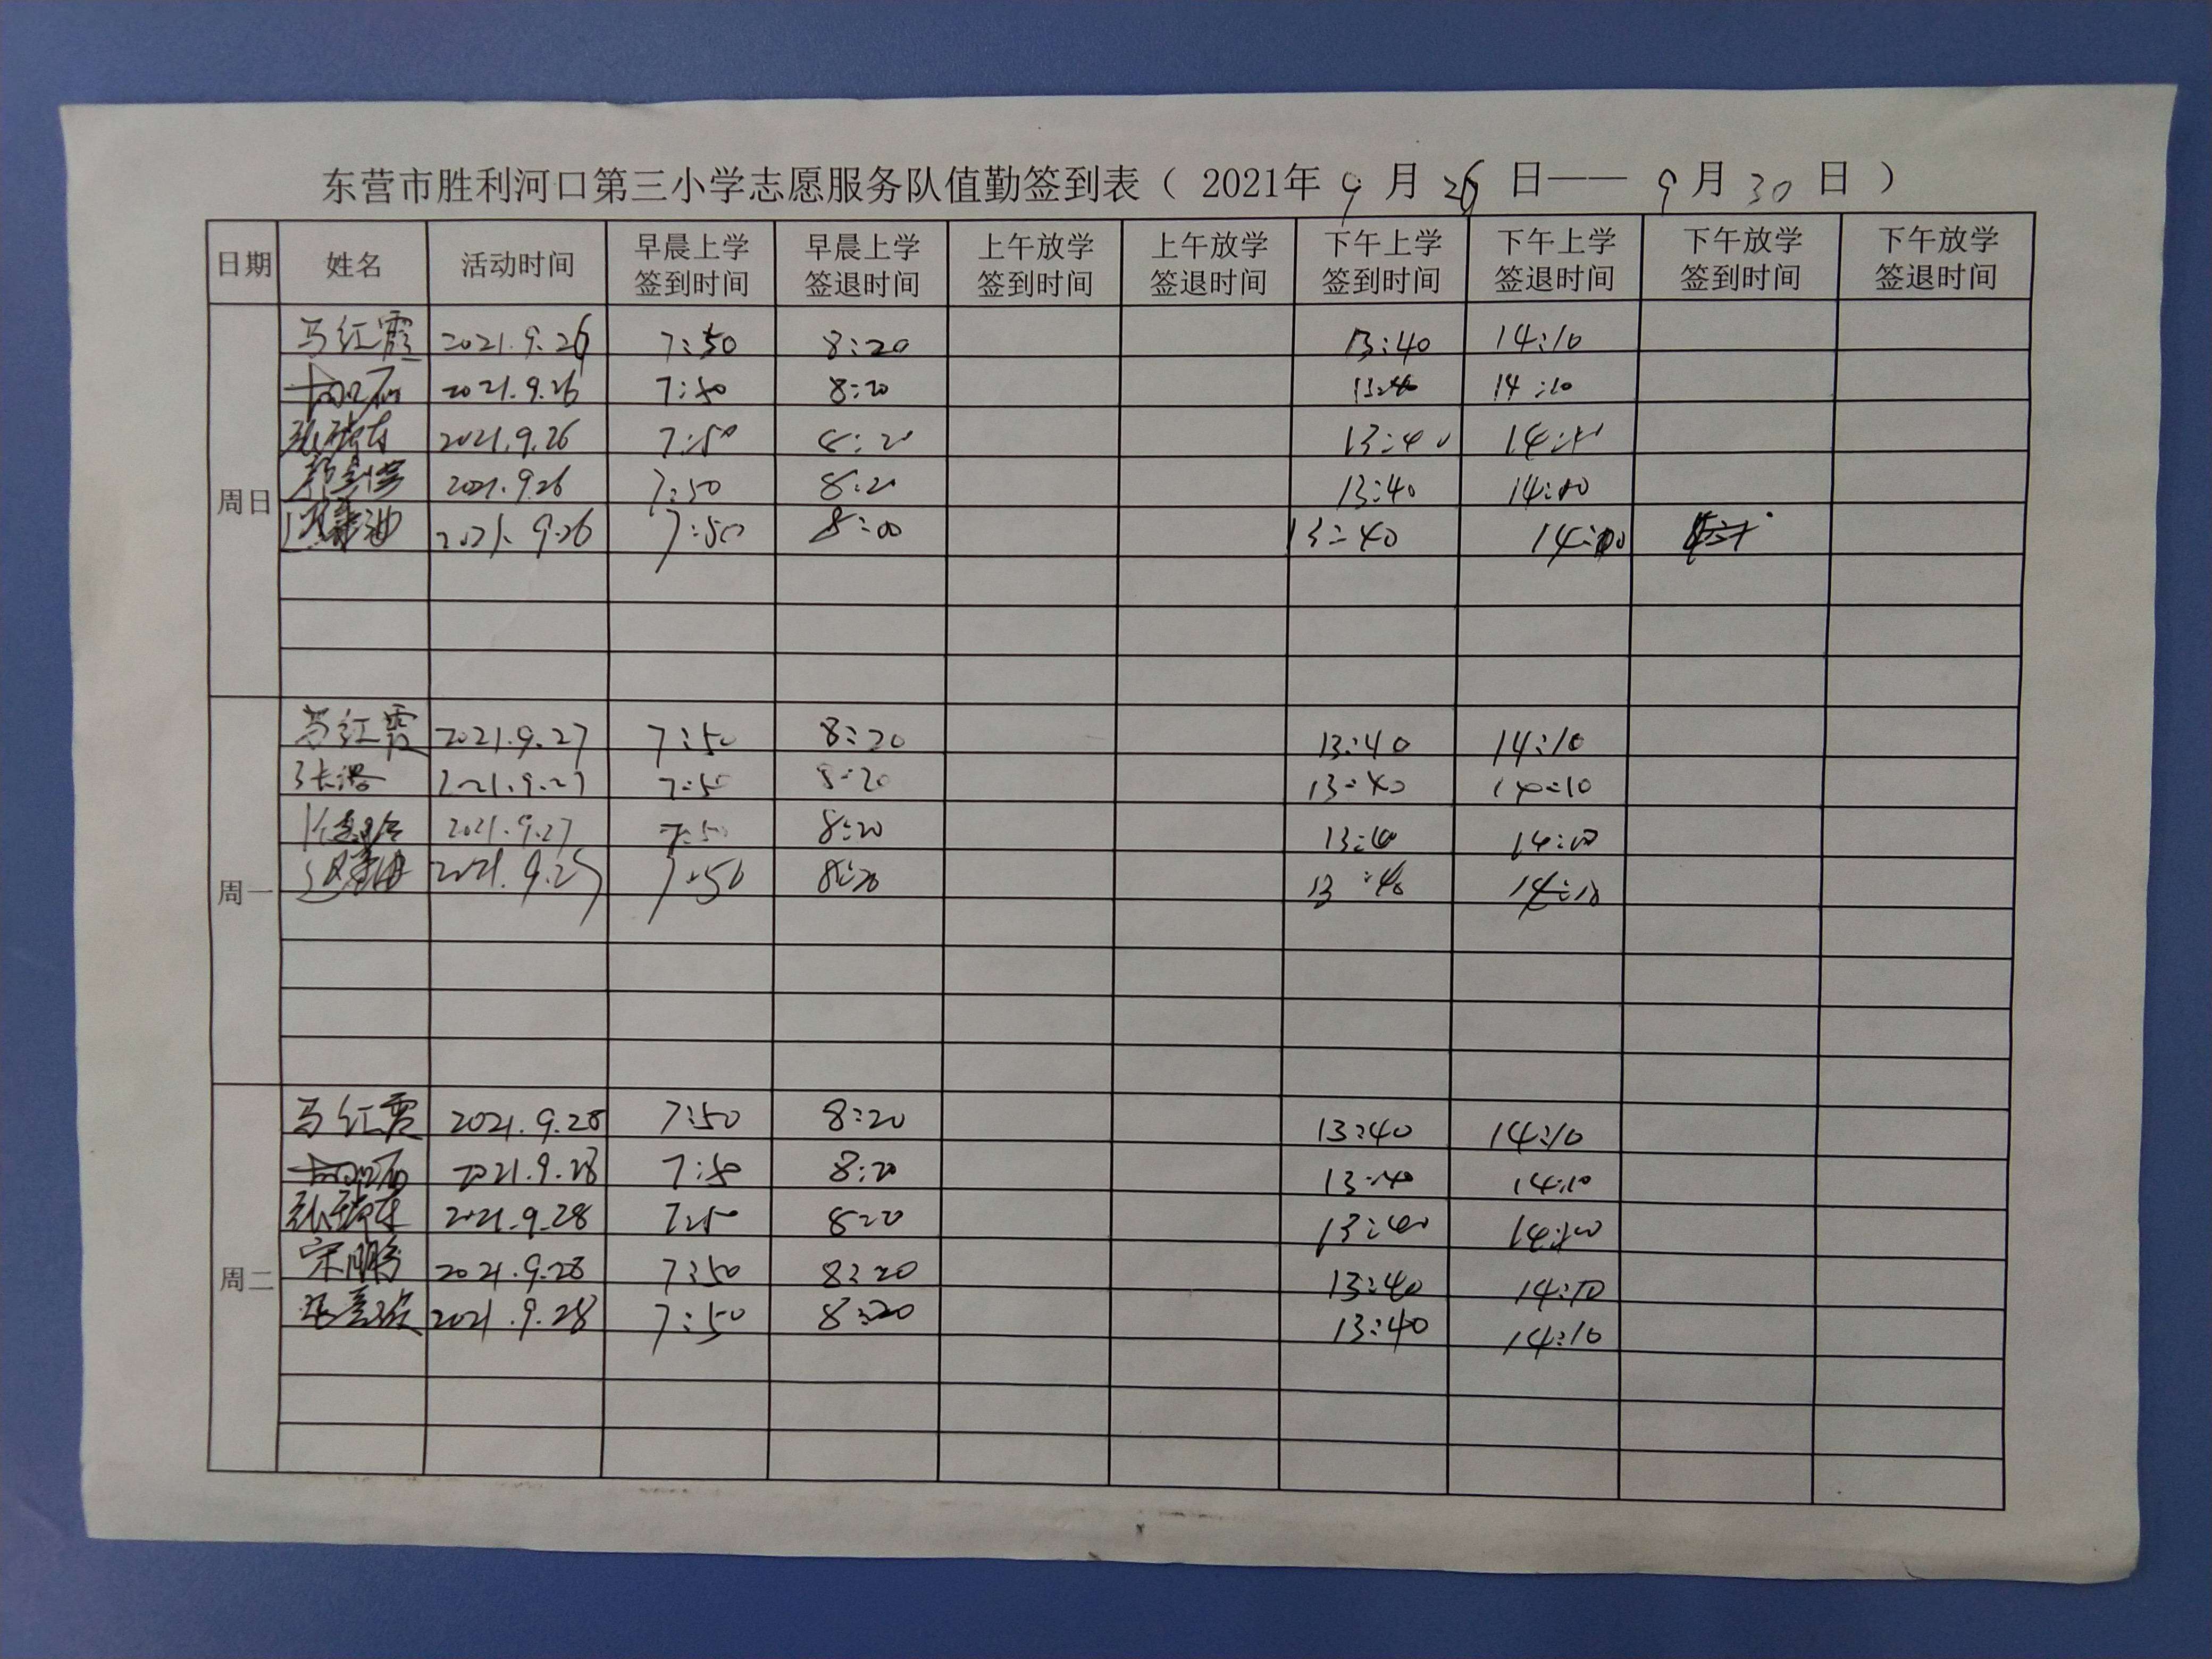 东营市胜利河口第三小学志愿服务队值勤签到表（ 2021年 9 月 26 日—— 9 月 30 日 ）
日期 姓名 活动时间 早晨上学签到时间 早晨上学签退时间 上午放学签到时间 上午放学签退时间 下午上学签到时间 下午上学签退时间 下午放学签到时间 下午放学签退时间
周日
马红霞 2021.9.26 7:50 8:20 13:40 14:10
2021.9.26 7:50 8:20 13:40 14:10
2021.9.26 7:50 8:20 13:40
2021.9.26 7:50 8:20 13:40
2021.9.26 7:50 13:40
周一
马红霞 2021.9.27 7:50 8:20 13:40 14:10
2021.9.27 7:50 8:20 13:40 14:10
2021.9.27 7:50 8:20 14:10
2021.9.27 7:50 8:20 13:40 14:10
周二
马红霞 2021.9.28 7:50 8:20 13:40 14:10
2021.9.28 7:50 8:20 13:40 14:10
2021.9.28 7:50 8:20 13:40
宋鹏 2021.9.28 7:50 8:20 13:40 14:10
2021.9.28 7:50 8:20 13:40 14:10